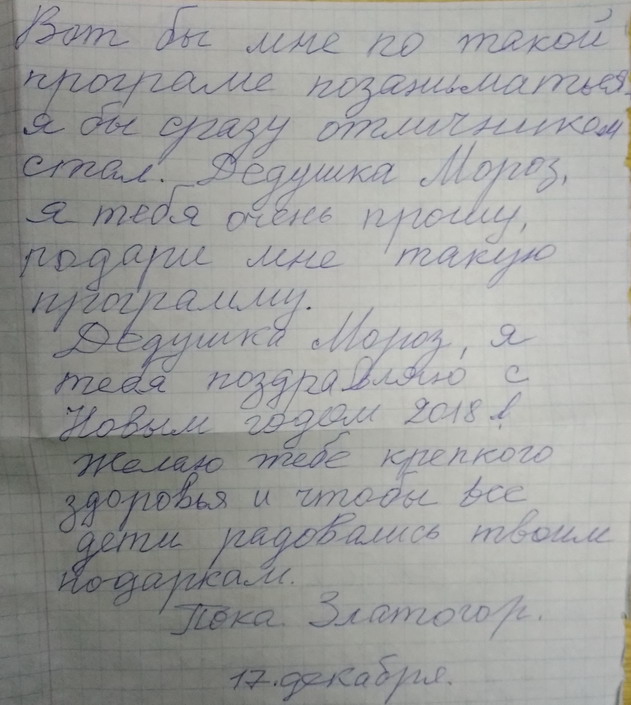 Вот бы мне по такой
програме позаниматься
я бы сразу отличником
стал. Дедушка Мороз,
я тебя очень прошу,
подари мне такую
программу.
Дедушка Мороз, я
тебя поздравляю с
Новым годом 2018!
Желаю тебе крепкого
здоровья и чтобы все
дети радовались твоим
подаркам.
Пока. Златогор.
17.декабря.